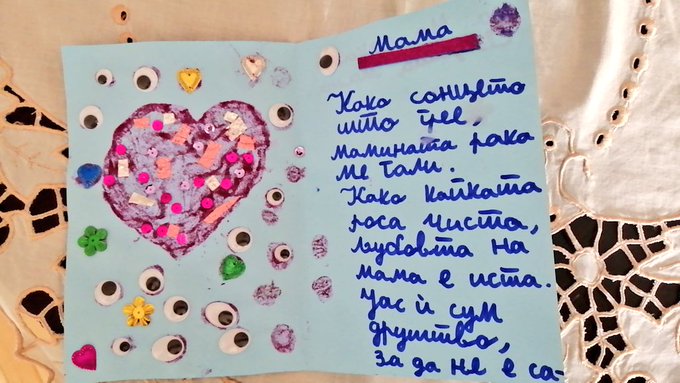 Мама
Како сонцето
што грее,
мамината рака
ме гали.
Како капката
роса чиста,
љубовта на
мама е иста.
Јас ѝ сум
друштво,
за да не е са-